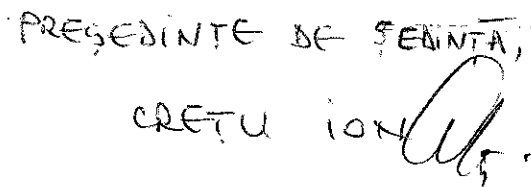 PREȘEDINTE DE ȘEDINȚĂ,
CREȚU ION